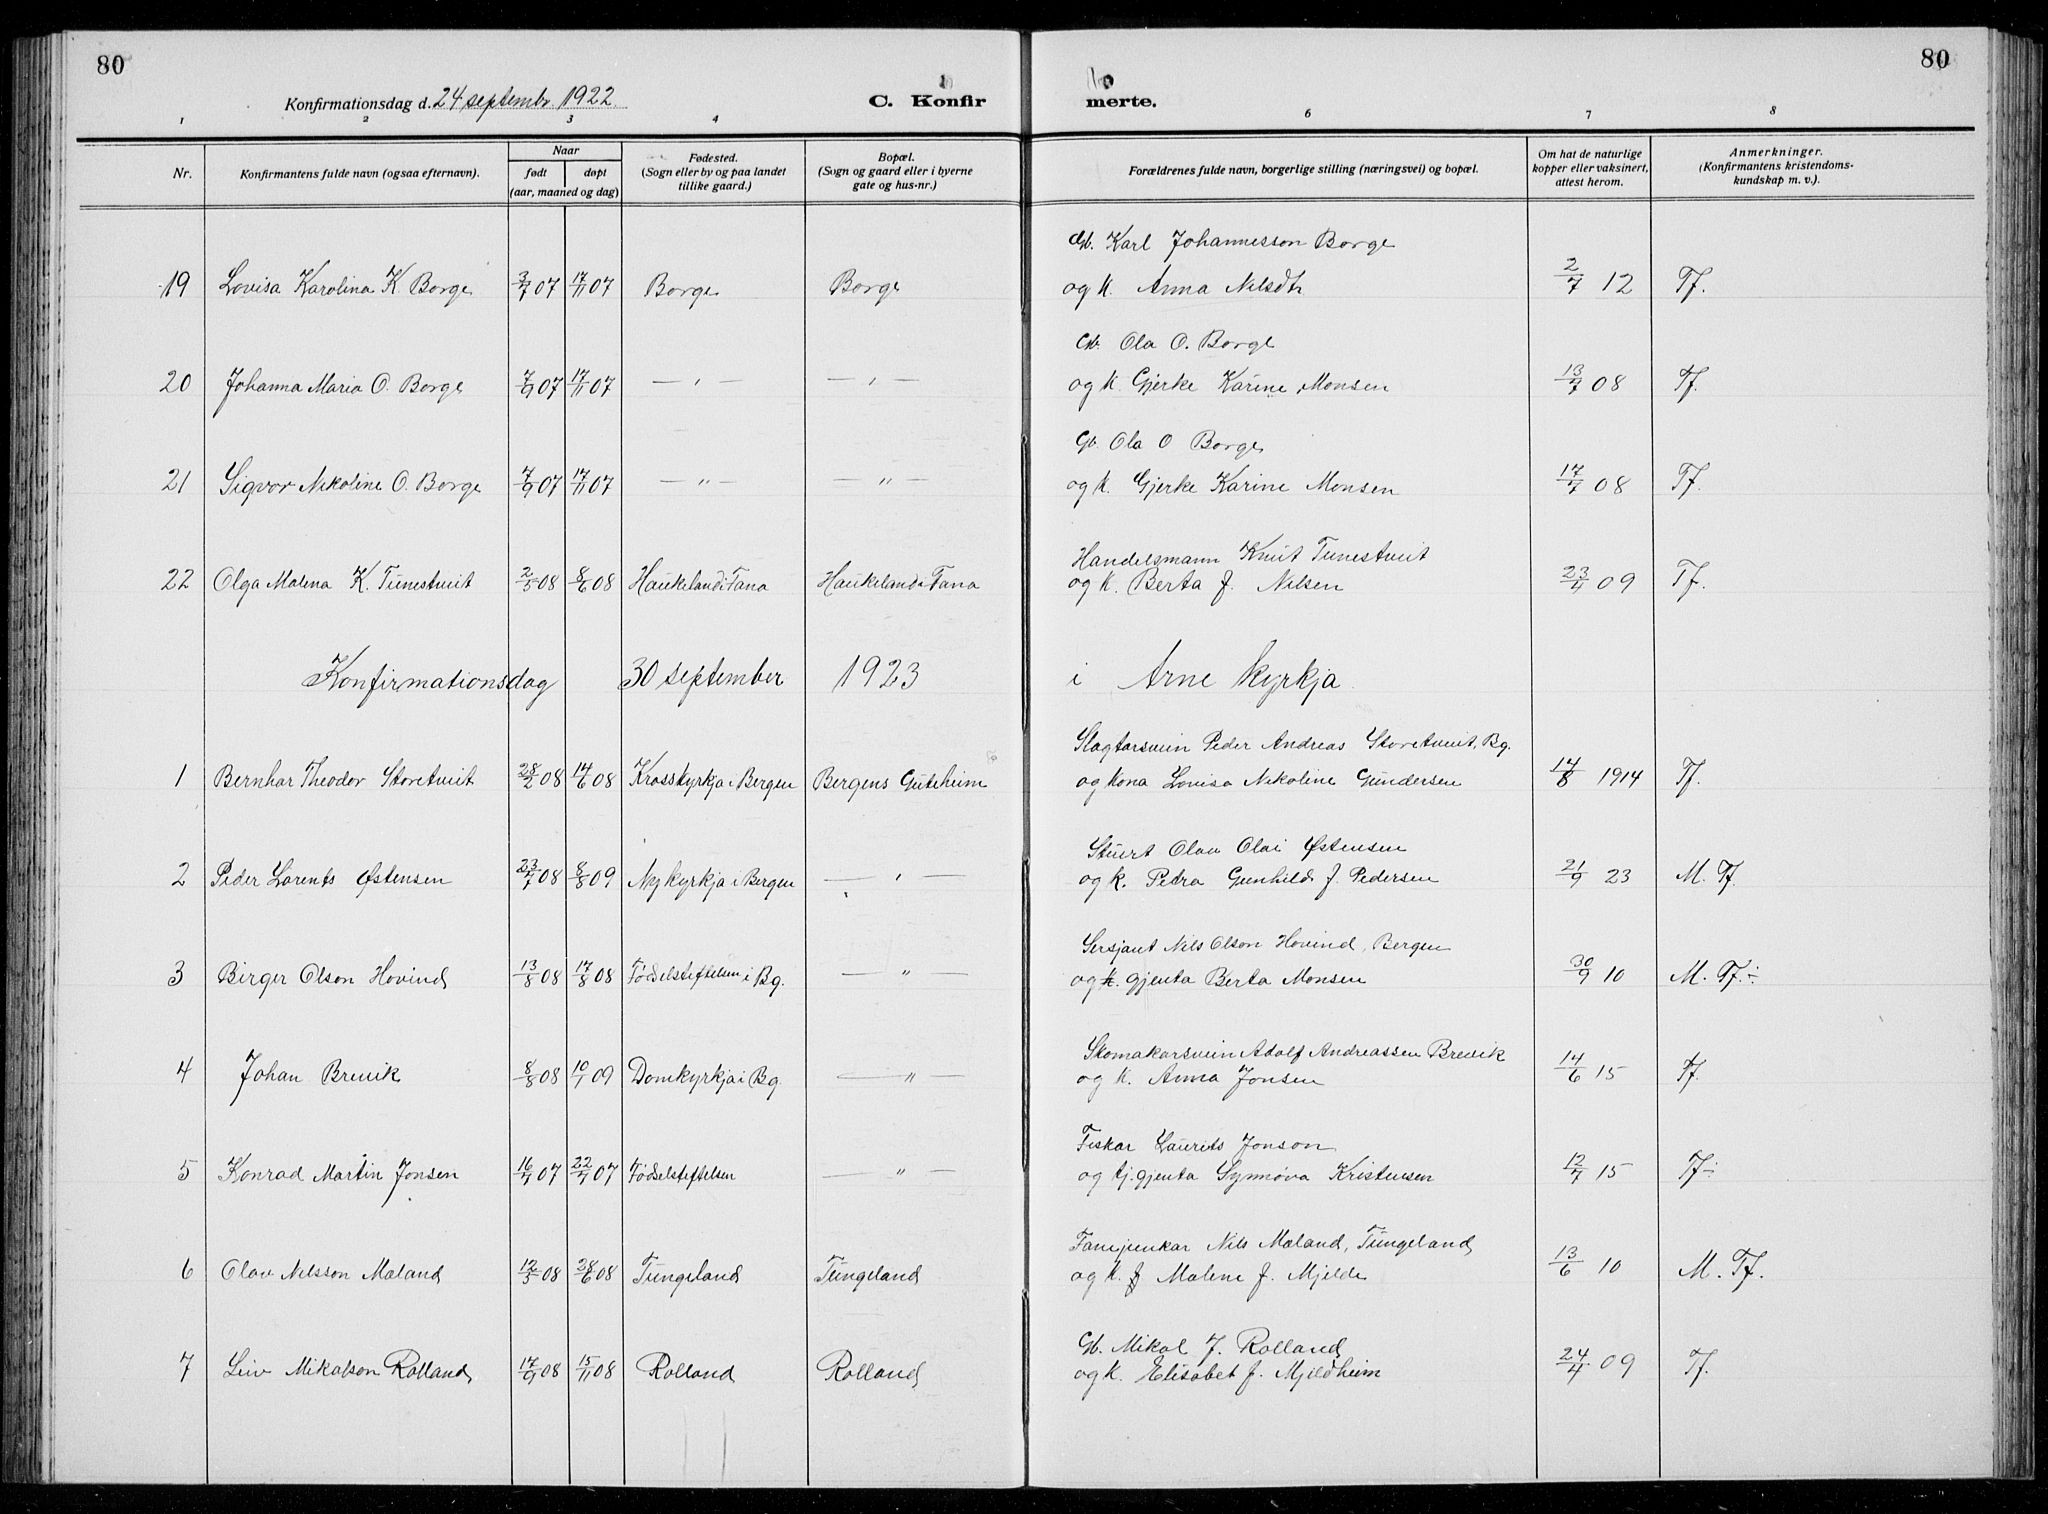 80
80
Konfirmationsdag d. 24 septembr. 1922
C. Konfir merte.
1 2 3 4 6 7 8
Nr.
Konfirmantens fulde navn (ogsaa efternavn).
Naar
født døpt
(aar, maaned og dag)
Fødested.
(Sogn eller by og paa landet
tillike gaard.)
Bopæl.
(Sogn og gaard eller i byerne
gate og hus-nr.)
Forældrenes fulde navn, borgerlige stilling (næringsvei) og bopæl.
Om hat de naturlige
kopper eller vaksinert,
attest herom.
Anmerkninger.
(Konfirmantens kristendoms-
kundskap m. v.).
Gb. Karl Johannesson Borge
19 Lovisa Karolina K. Borge 3/7 07 17/11 07 Borge Borge og k. Anna Nilsdtr 2/7 12 Tf.
Gb. Ola O. Borge
20 Johanna Maria O. Borge 7/9 07 17/11 07 — „ — — „ — og k. Gjerke Karine Monsen 13/7 08 Tf.
Gb. Ola O Borge
21 Sigvor Nikoline O. Borge 7/9 07 17/11 07 — „ — — „ — og k. Gjerke Karine Monsen 17/7 08 Tf.
Handelsmann Knut Tunestveit
22 Olga Malena K. Tunestveit 2/5 08 8/6 08 Haukeland i Fana Haukeland i Fana og k. Berta f. Nilsen 23/4 09 Tf.
Konfirmationsdag 30 september 1923 i Arne kyrkja
Slagtarsvein Peder Andreas Storetveit, Bg.
1 Bernhar Theodor Storetveit 28/2 08 14/6 08 Krosskyrkja i Bergen Bergens Guteheim og kona Lovisa Nikoline Gundersen 14/8 1914 Tf.
Stuert Olav Olai Østensen
2 Peder Lorents Østensen 23/7 08 8/8 09 Nykyrkja i Bergen — „ — og k. Pedra Gunhild f. Pedersen 21/9 23 M. Tf.
Sersjant Nils Olson Hovind, Bergen
3 Birger Olson Hovind 13/8 08 17/8 08 Fødselsteftelsen i Bg. — „ — og k. gjenta Berta Monsen 30/9 10 M. Tf. ÷
Skomakarsvein Adolf Andreassen Brevik
4 Johan Brevik 8/8 08 10/1 09 Domkyrkja i Bg. — „ — og k. Anna Jonsen 14/6 15 Tf.
Fiskar Laurits Jonson
5 Konrad Martin Jonsen 16/7 07 22/7 07 Fødselsteftelsen — „ — og tj. gjenta Synnøva Kristensen 12/7 15 Tf ÷
Fanejunkar Nils Mæland, Tungeland
6 Olav Nilsson Mæland 12/5 08 28/6 08 Tungeland Tungeland og k. f Malene f. Mjelde 13/6 10 M. Tf.
Gb. Mikal J. Rolland
7 Leiv Mikalson Rolland 17/9 08 15/11 08 Rolland Rolland og k. Elisabet f. Mjeldheim 24/4 09 Tf.